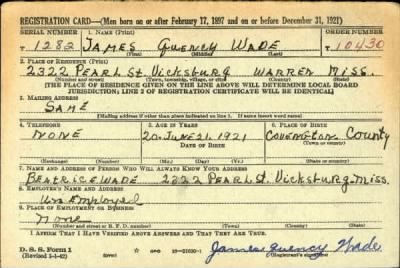 REGISTRATION CARD—(Men born on or after February 17, 1897 and on or before December 31, 1921)
SERIAL NUMBER 1. NAME (Print) ORDER NUMBER
T 1282 JAMES Quency WADE T 10430
(First) (Middle) (Last)
2. PLACE OF RESIDENCE (Print)
2322 PEARL St. Vicksburg WARREN Miss.
(Number and street) (Town, township, village, or city) (County) (State)
[THE PLACE OF RESIDENCE GIVEN ON THE LINE ABOVE WILL DETERMINE LOCAL BOARD
JURISDICTION; LINE 2 OF REGISTRATION CERTIFICATE WILL BE IDENTICAL]
3. MAILING ADDRESS
SAME
[Mailing address if other than place indicated on line 2. If same insert word same]
4. TELEPHONE 5. AGE IN YEARS 6. PLACE OF BIRTH
NONE 20 June 21, 1921 Covington County
DATE OF BIRTH
(Exchange) (Number) (Mo.) (Day) (Yr.) (Town or county) (State or country)
7. NAME AND ADDRESS OF PERSON WHO WILL ALWAYS KNOW YOUR ADDRESS
BEATRICE WADE 2322 PEARL St. Vicksburg, Miss.
8. EMPLOYER'S NAME AND ADDRESS
Unemployed
9. PLACE OF EMPLOYMENT OR BUSINESS
None
(Number and street or R. F. D. number) (Town) (County) (State)
I AFFIRM THAT I HAVE VERIFIED ABOVE ANSWERS AND THAT THEY ARE TRUE.
D. S. S. Form 1
(Revised 1-1-42) (over)
James Quency Wade
(Registrant's signature)